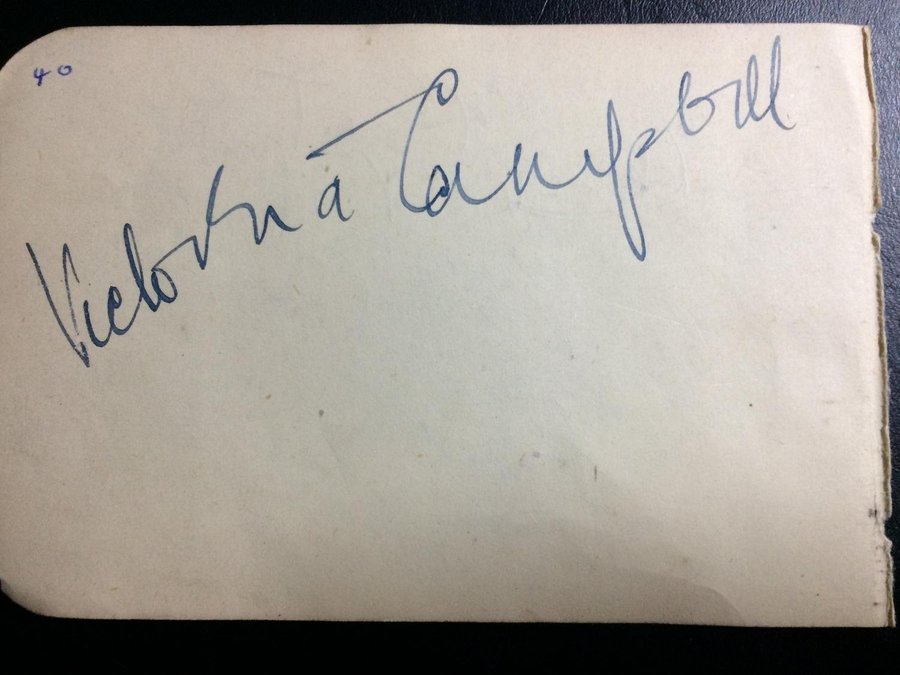 40
Victoria Campbell